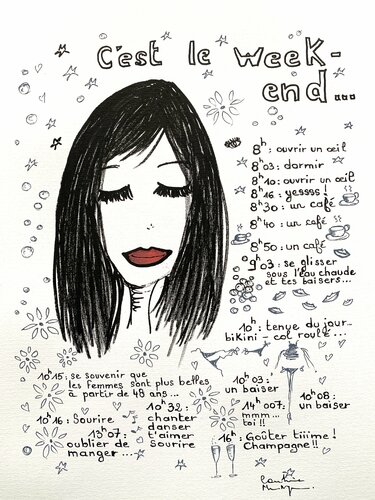 C'est le week-
end...
8h : ouvrir un œil
8h03 : dormir
8h10 : ouvrir un œil
8h16 : yessss !
8h30 : un café
8h40 : un café
8h50 : un café
9h03 : se glisser
sous l'eau chaude
et tes baisers...
10h : tenue du jour...
bikini - col roulé...
10h15 : se souvenir que
les femmes sont plus belles
à partir de 48 ans...
10h03 :
un baiser
10h08 :
un baiser
10h16 : Sourire
10h32 :
chanter
danser
t'aimer
sourire
14h007 :
mmm...
toi !!
13h07 :
oublier de
manger...
16h : Goûter tiiime !
Champagne !!